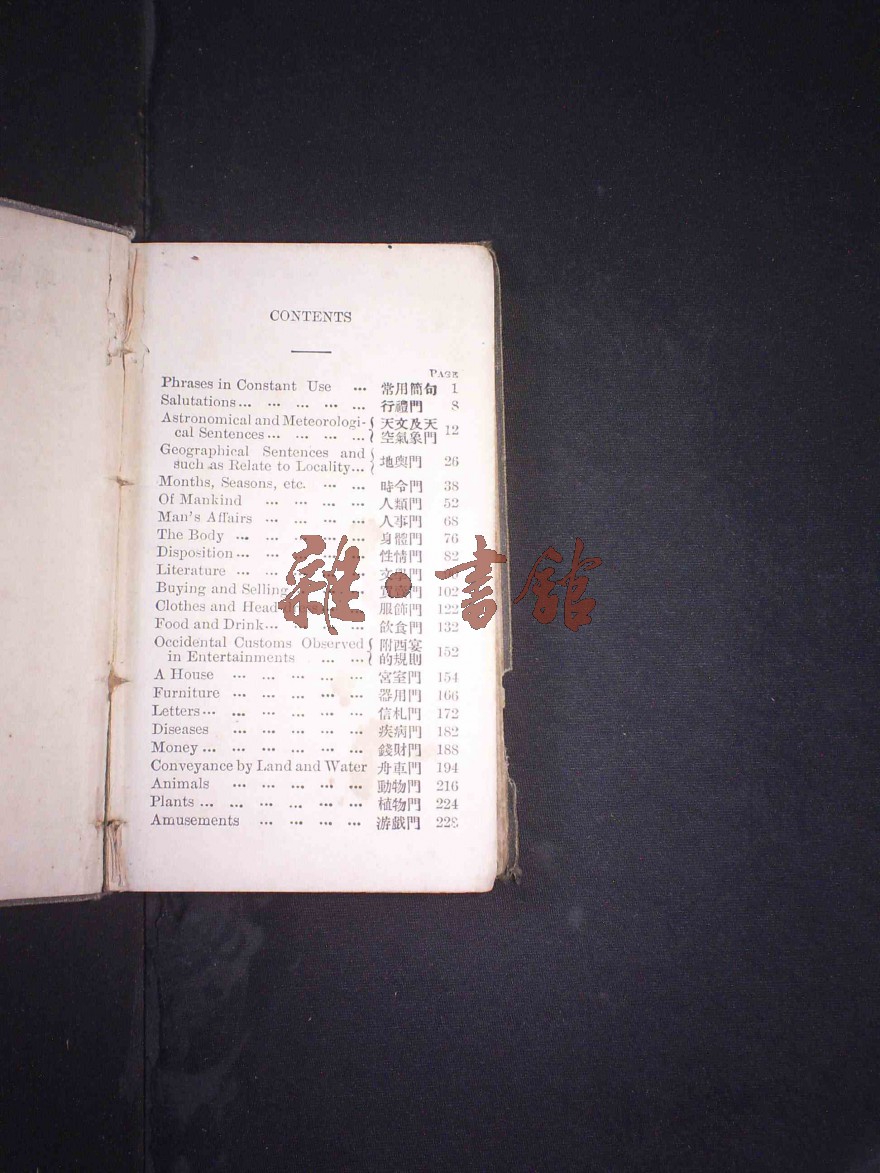 CONTENTS
PAGE
Phrases in Constant Use ... 常用簡句 1
Salutations... ... ... ... ... 行禮門 8
Astronomical and Meteorologi- 天文及天
cal Sentences... ... ... ... 空氣象門 12
Geographical Sentences and
such as Relate to Locality... 地輿門 26
Months, Seasons, etc. ... ... 時令門 38
Of Mankind ... ... ... ... 人類門 52
Man's Affairs ... ... ... ... 人事門 68
The Body ... ... ... ... ... 身體門 76
Disposition... ... ... ... ... 性情門 82
Literature ... ... ... ... ... 門
Buying and Selling 門 102
Clothes and Head 服飾門 122
Food and Drink... ... ... ... 飲食門 132
Occidental Customs Observed 附西宴
in Entertainments ... ... 的規則 152
A House ... ... ... ... ... 宮室門 154
Furniture ... ... ... ... ... 器用門 166
Letters... ... ... ... ... ... 信札門 172
Diseases ... ... ... ... ... 疾病門 182
Money ... ... ... ... ... ... 錢財門 188
Conveyance by Land and Water 舟車門 194
Animals ... ... ... ... ... 動物門 216
Plants ... ... ... ... ... ... 植物門 224
Amusements ... ... ... ... 游戲門
雜·書館